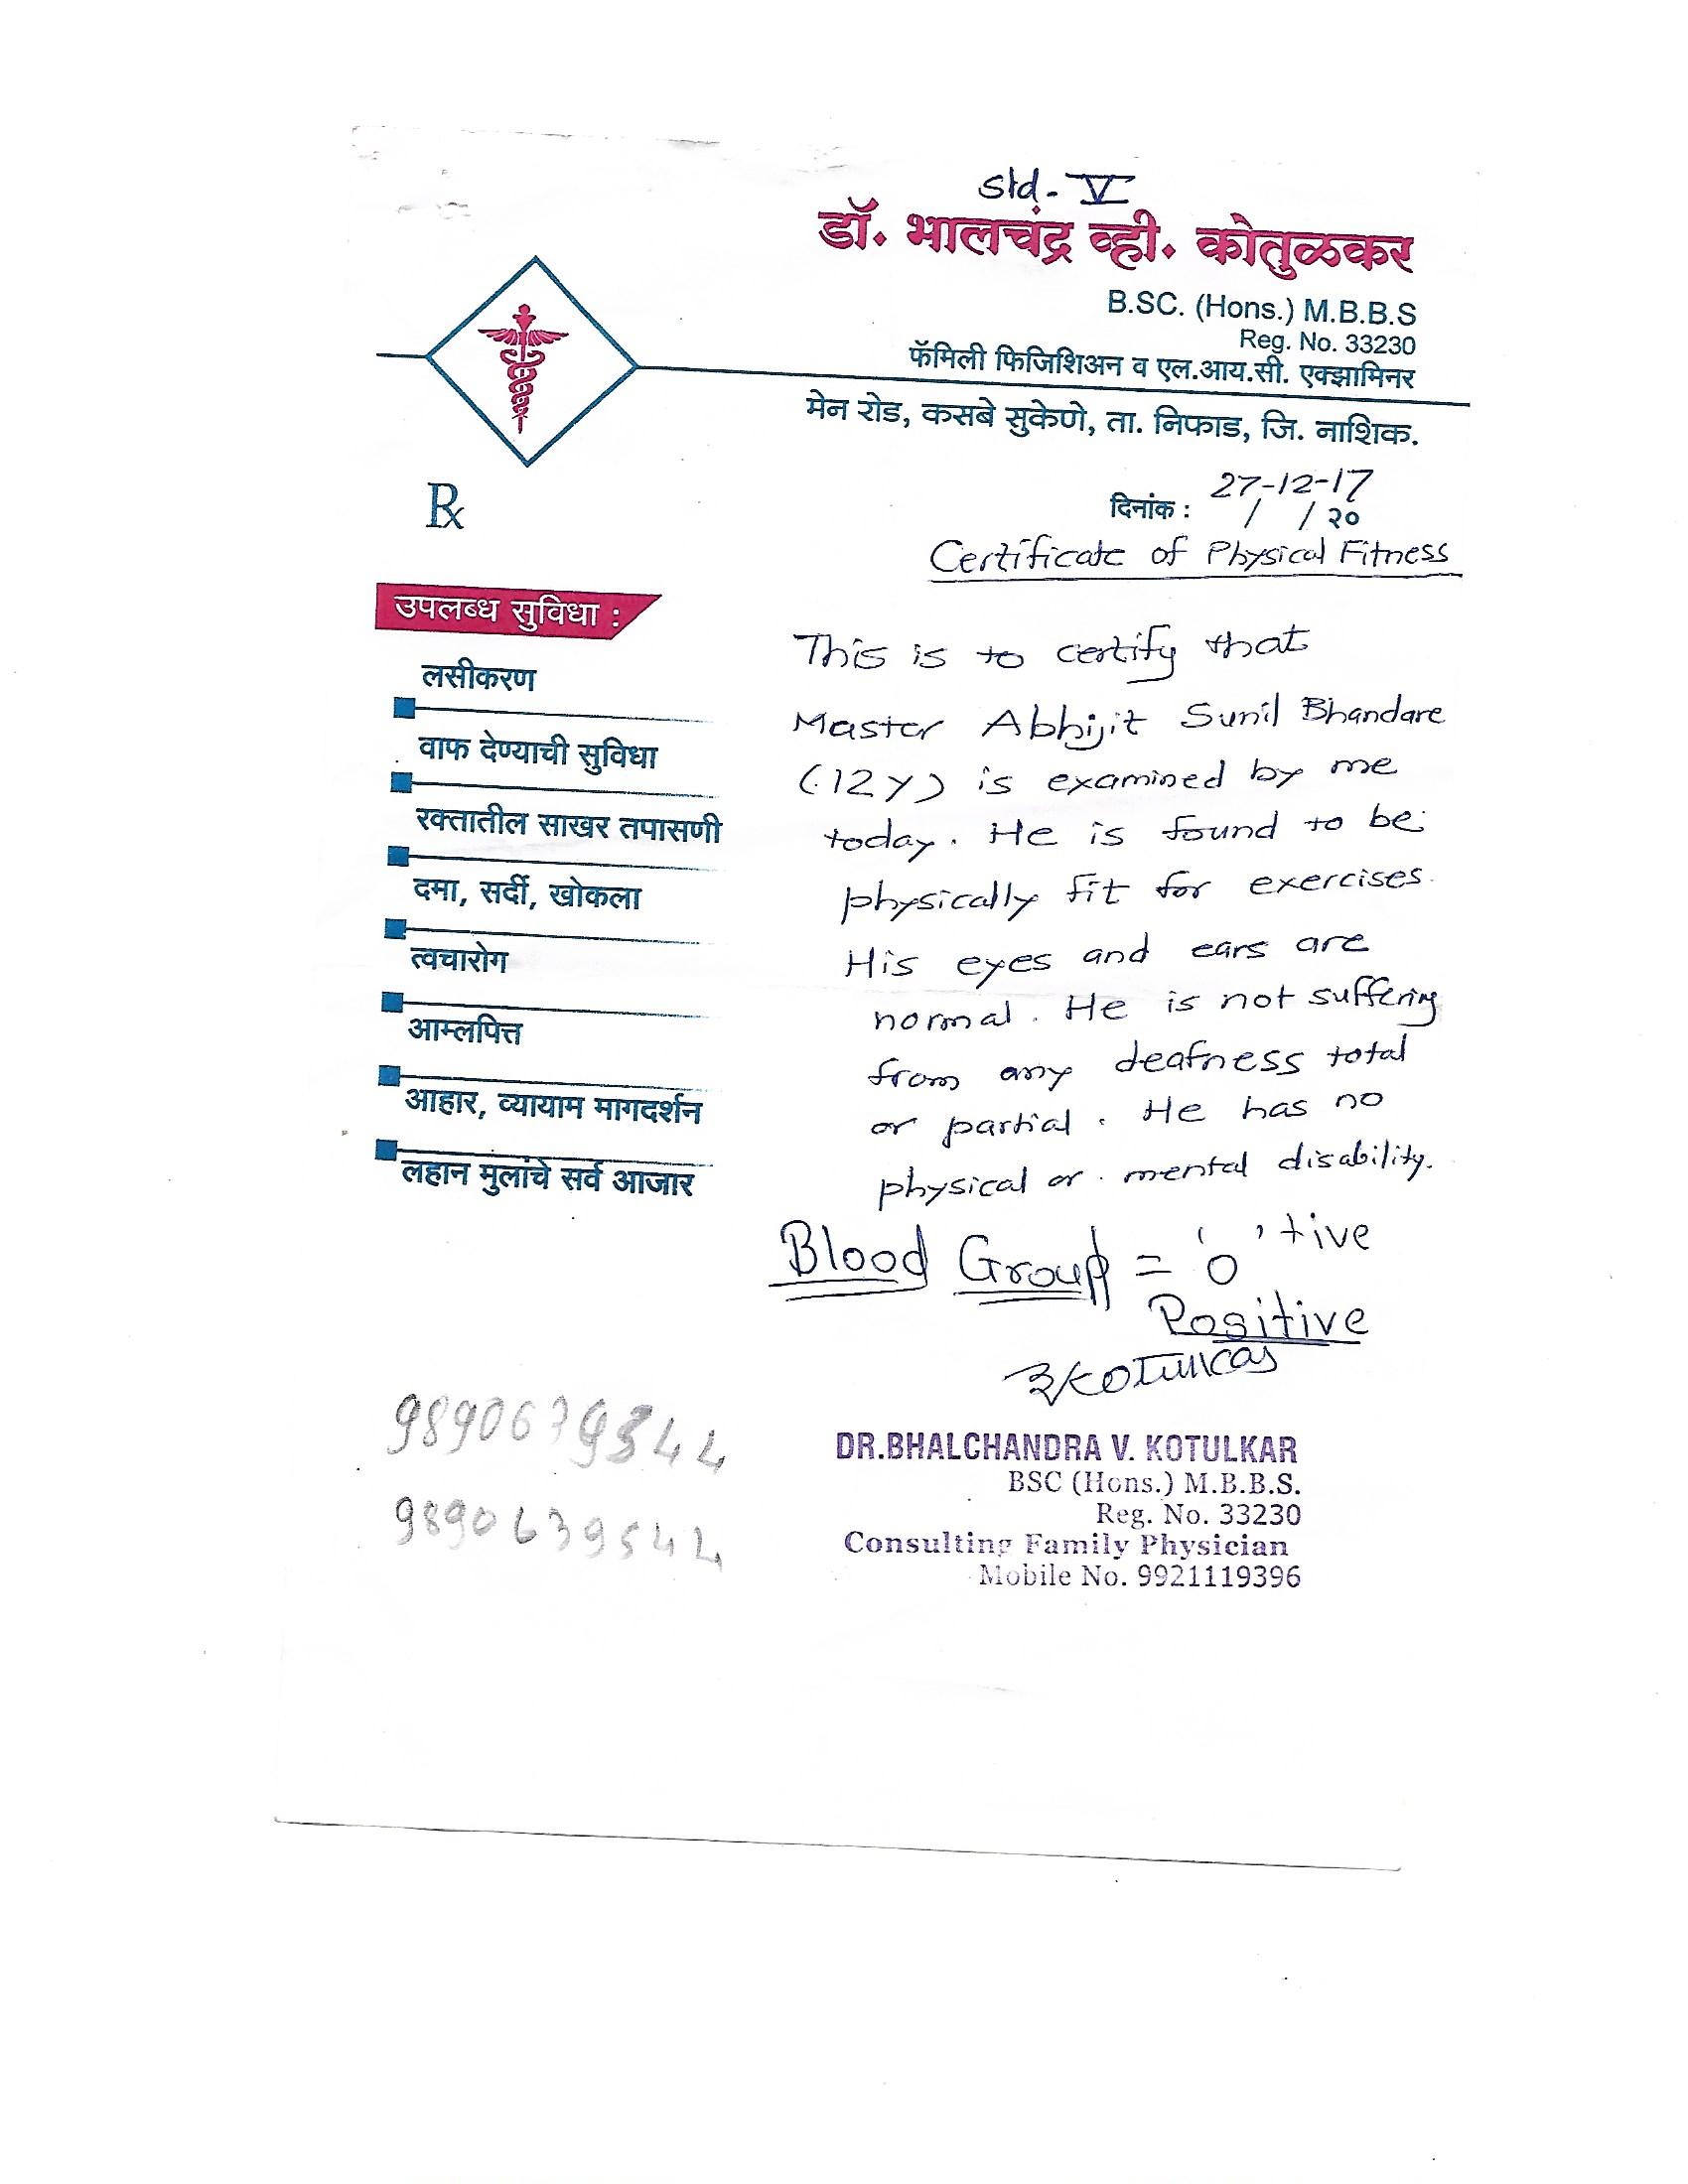 Std- V
डॉ. भालचंद्र व्ही. कोतुळकर
B.SC. (Hons.) M.B.B.S
Reg. No. 33230
फॅमिली फिजिशिअन व एल.आय.सी. एक्झामिनर
मेन रोड, कसबे सुकेणे, ता. निफाड, जि. नाशिक.
Rx
27-12-17
दिनांक : / / २०
Certificate of Physical Fitness
उपलब्ध सुविधा :
लसीकरण
वाफ देण्याची सुविधा
रक्तातील साखर तपासणी
दमा, सर्दी, खोकला
त्वचारोग
आम्लपित्त
आहार, व्यायाम मागदर्शन
लहान मुलांचे सर्व आजार
This is to certify that
Master Abhijit Sunil Bhandare
(12y) is examined by me
today. He is found to be
physically fit for exercises.
His eyes and ears are
normal. He is not suffering
from any deafness total
or partial. He has no
physical or mental disability.
Blood Group = 'O' +ive
Positive
BKotulkar
9890639544
DR.BHALCHANDRA V. KOTULKAR
BSC (Hons.) M.B.B.S.
Reg. No. 33230
Consulting Family Physician
Mobile No. 9921119396